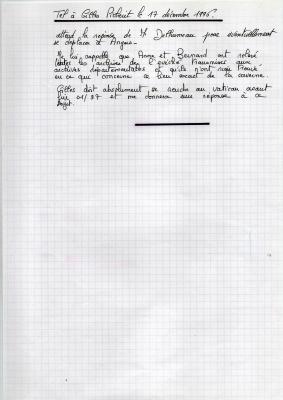 Tel à Gilles Pidercit le 17 décembre 1996.
attend la réponse de Mr Delhumeau pour éventuellement
se déplacer à Angers
Je lui rappelle que Anne et Bernard ont relevé
toutes les archives de l'évêché transmises aux
archives départementales et qu'ils n'ont rien trouvé
en ce qui concerne ce lieu exact de la caverne.
Gilles doit absolument se rendre au vatican avant
fin 01/97 et me donnera une réponse à ce
sujet.